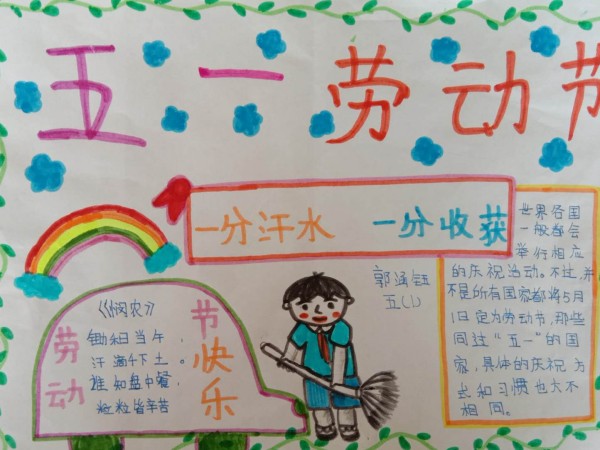 五一劳动节
一分汗水 一分收获
郭涵钰
五(1)
《悯农》
锄禾日当午,
汗滴禾下土。
谁知盘中餐,
粒粒皆辛苦
劳动
节快乐
世界各国
一般都会
举行相应
的庆祝活动。不过,并
不是所有国家都将5月
1日定为劳动节,那些
同过“五一”的国
家,具体的庆祝方
式和习惯也大不
相同。